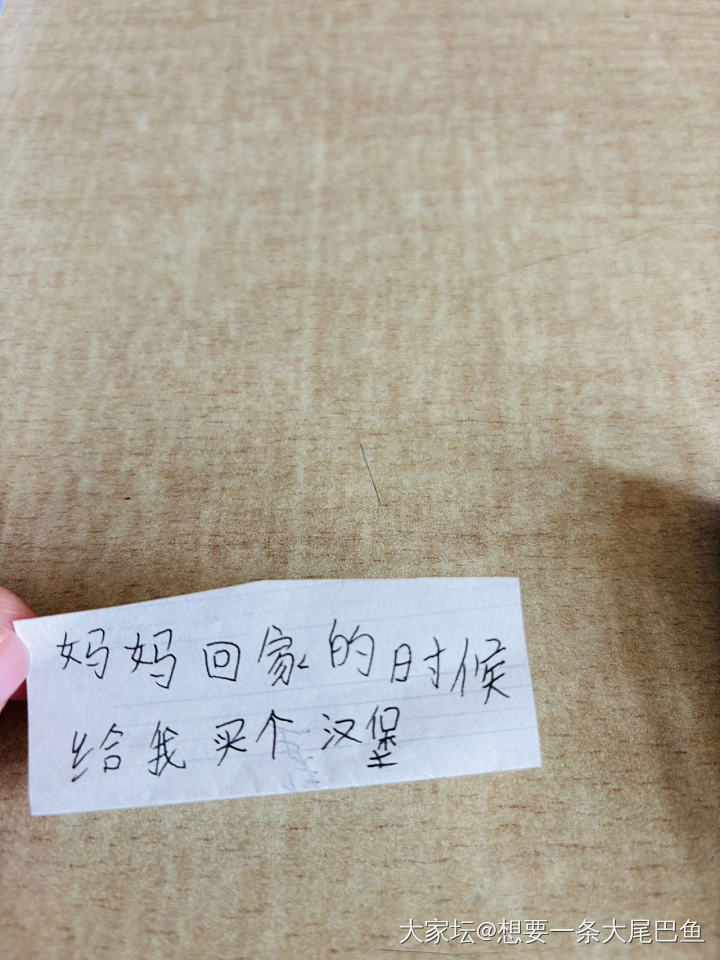 妈妈回家的时候
给我买个汉堡
大家坛@想要一条大尾巴鱼